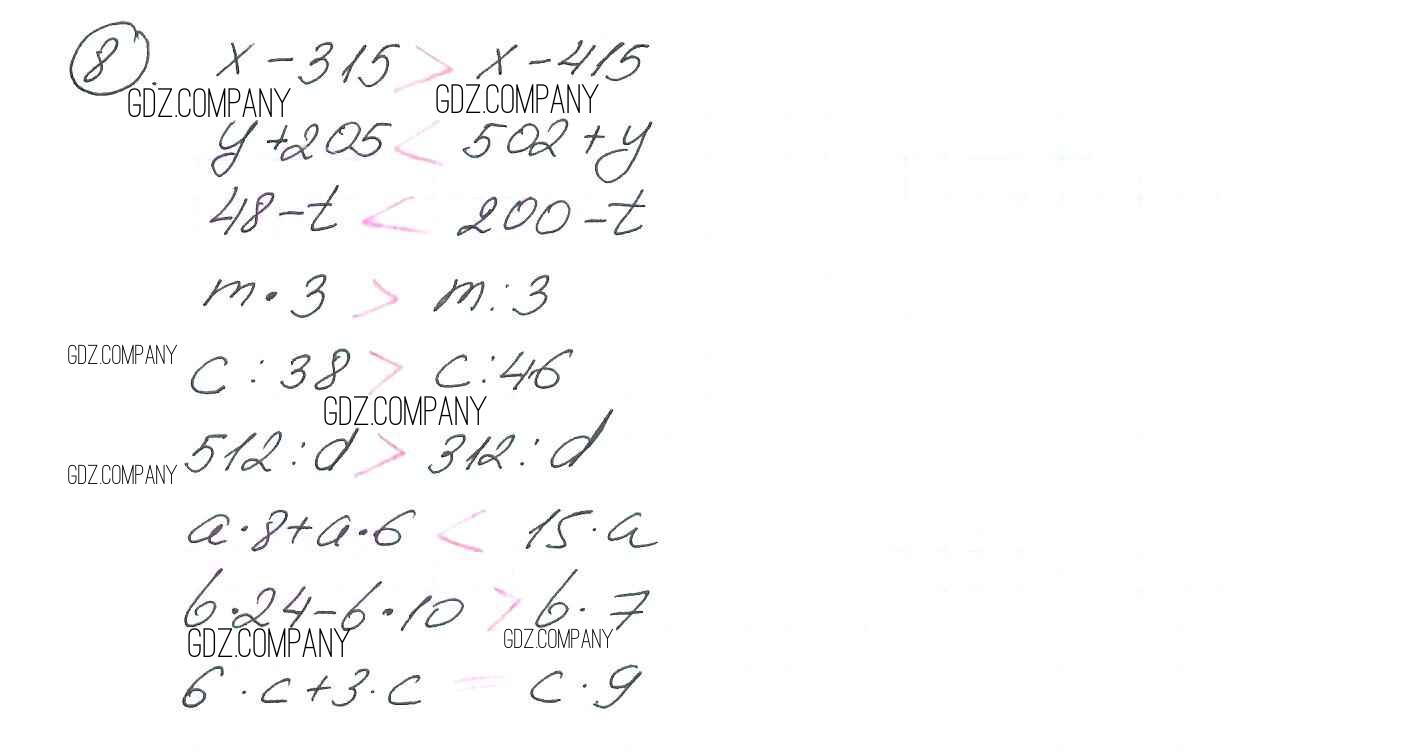 8. x - 315 > x - 415
GDZ.COMPANY GDZ.COMPANY
y + 205 < 502 + y
48 - t < 200 - t
m · 3 > m : 3
GDZ.COMPANY
c : 38 > c : 46
GDZ.COMPANY
512 : d > 312 : d
GDZ.COMPANY
a · 8 + a · 6 < 15 · a
b · 24 - b · 10 > b · 7
GDZ.COMPANY GDZ.COMPANY
6 · c + 3 · c = c · 9